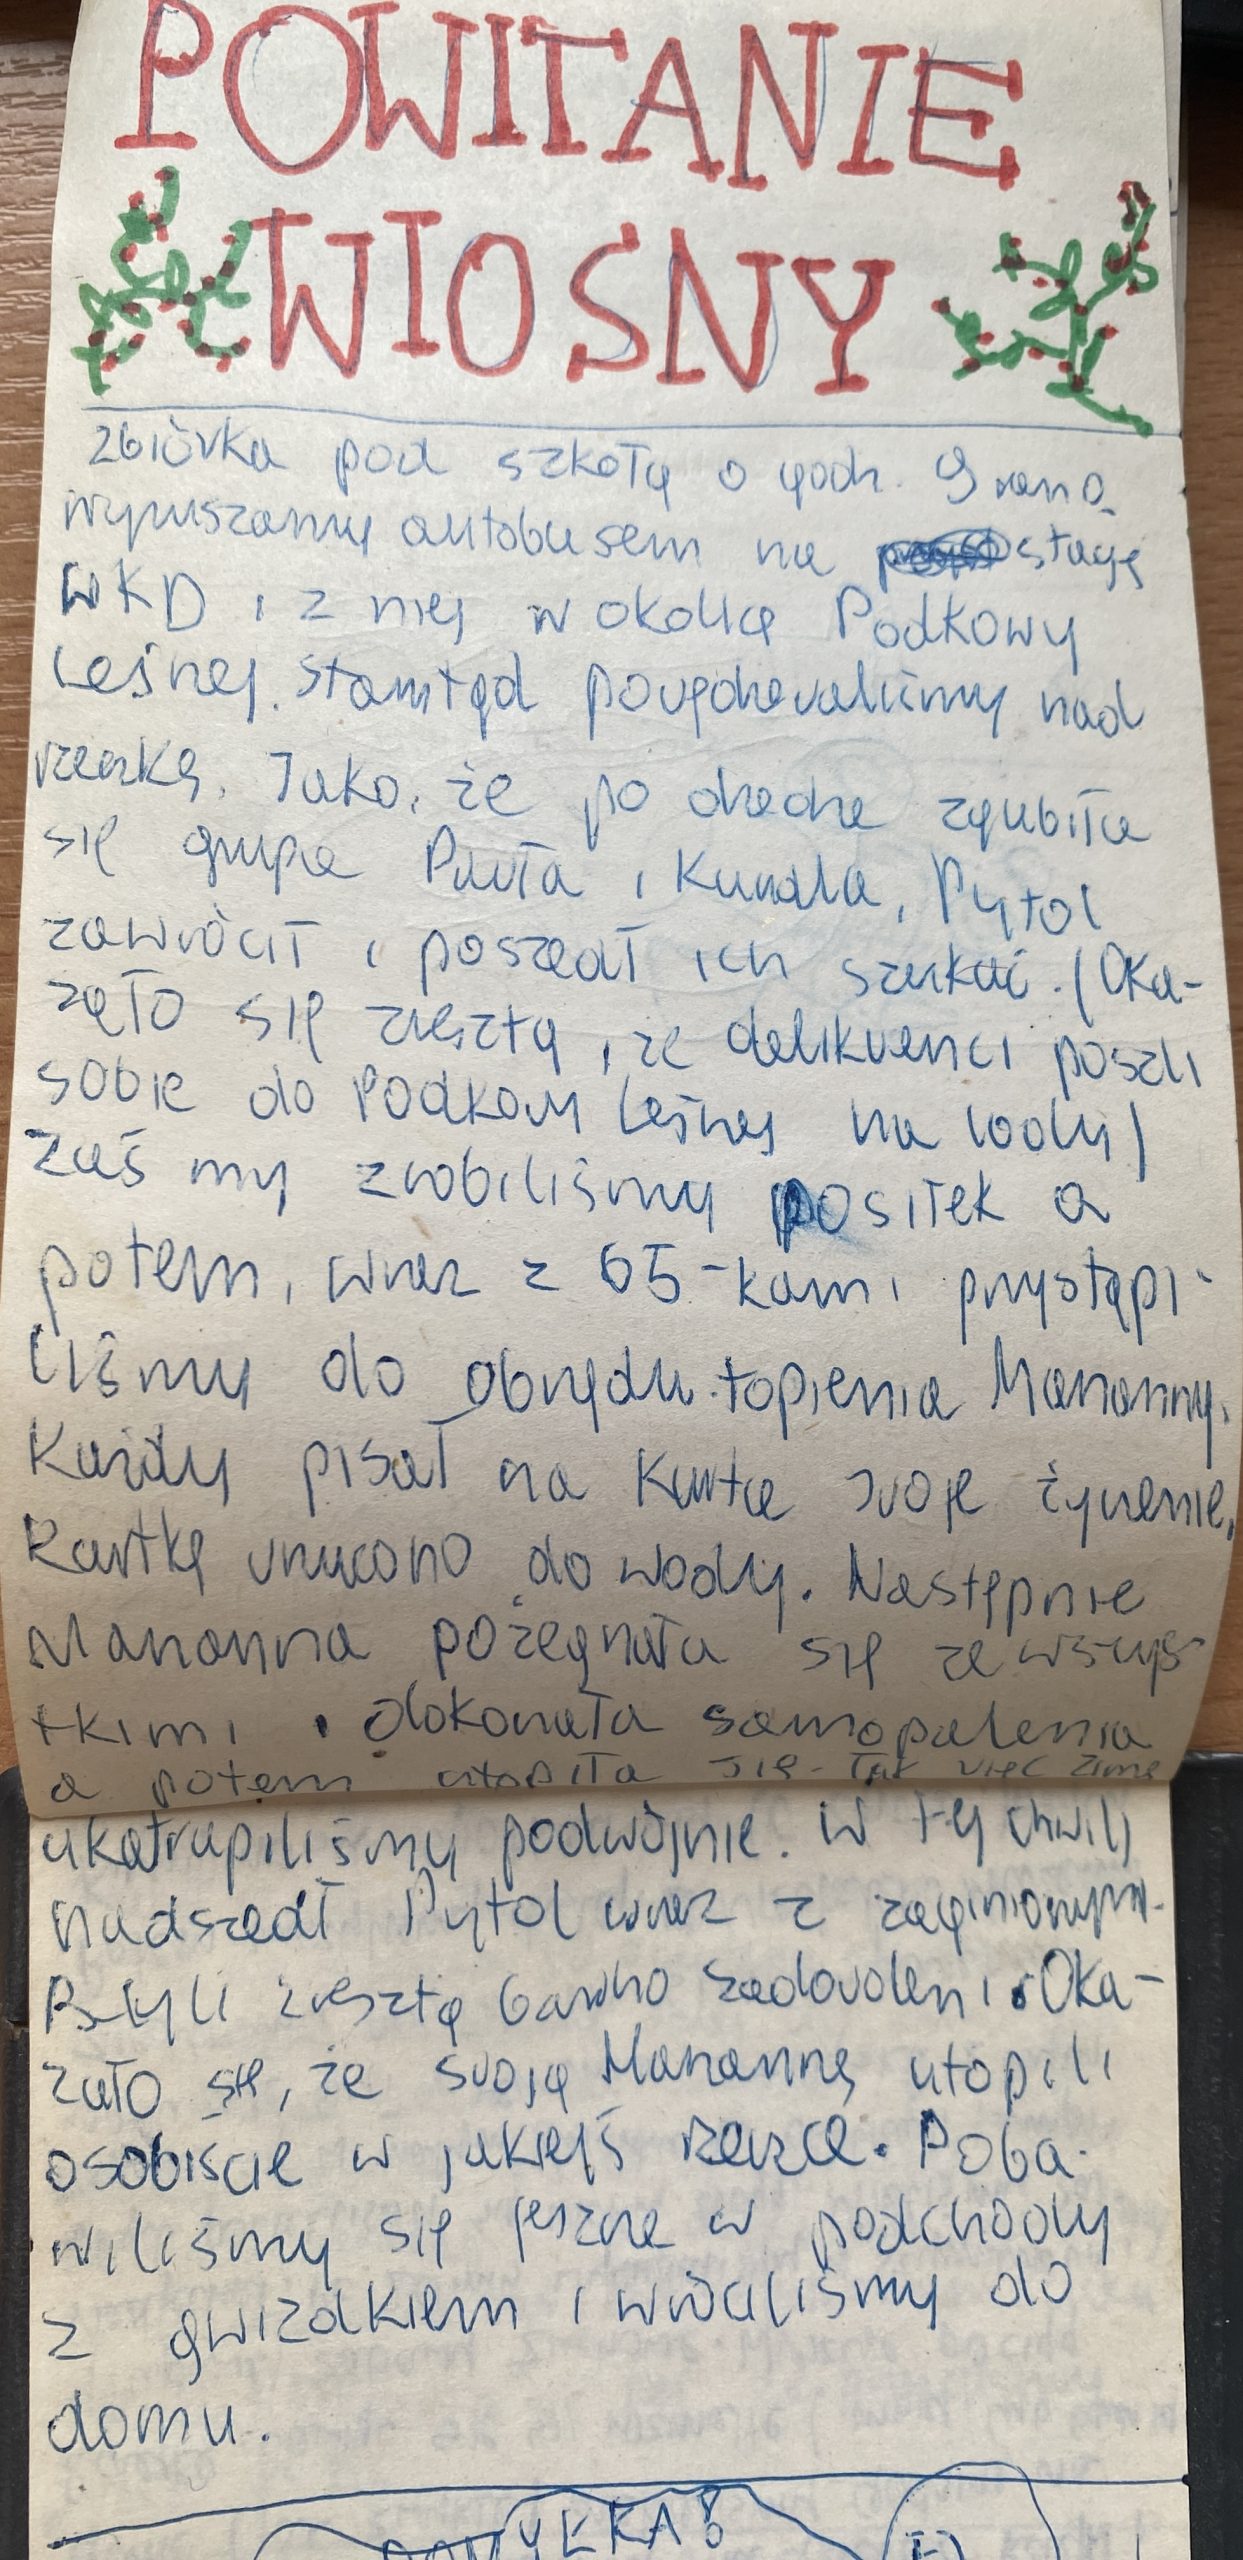 POWITANIE
WIOSNY
zbiórka pod szkołą o godz. 9 rano.
wyruszamy autobusem na stację
WKD i z niej w okolicę Podkowy
Leśnej. Stamtąd powędrowaliśmy nad
rzeczkę. Jako, że po drodze zgubiła
się grupa Pawła i Kundla, Pytol
zawrócił i poszedł ich szukać. (Oka-
zało się zresztą, że delikwenci poszli
sobie do Podkowy Leśnej na lody)
Zaś my zrobiliśmy posiłek a
potem, wraz z 65-kami przystąpi-
liśmy do obrzędu topienia Marzanny.
Każdy pisał na kartce swoje życzenie,
Kartkę wrzucono do wody. Następnie
Marzanna pożegnała się ze wszys-
tkimi i dokonała samopalenia
a potem utopiła się - Tak więc zimę
ukatrupiliśmy podwójnie. W tej chwili
nadszedł Pytol wraz z zaginionymi.
Byli zresztą bardzo zadowoleni. Oka-
zało się, że swoją Marzannę utopili
osobiście w jakiejś rzeczce. Poba-
wiliśmy się jeszcze w podchody
z gwizdkiem i wróciliśmy do
domu.
POMYŁKA!